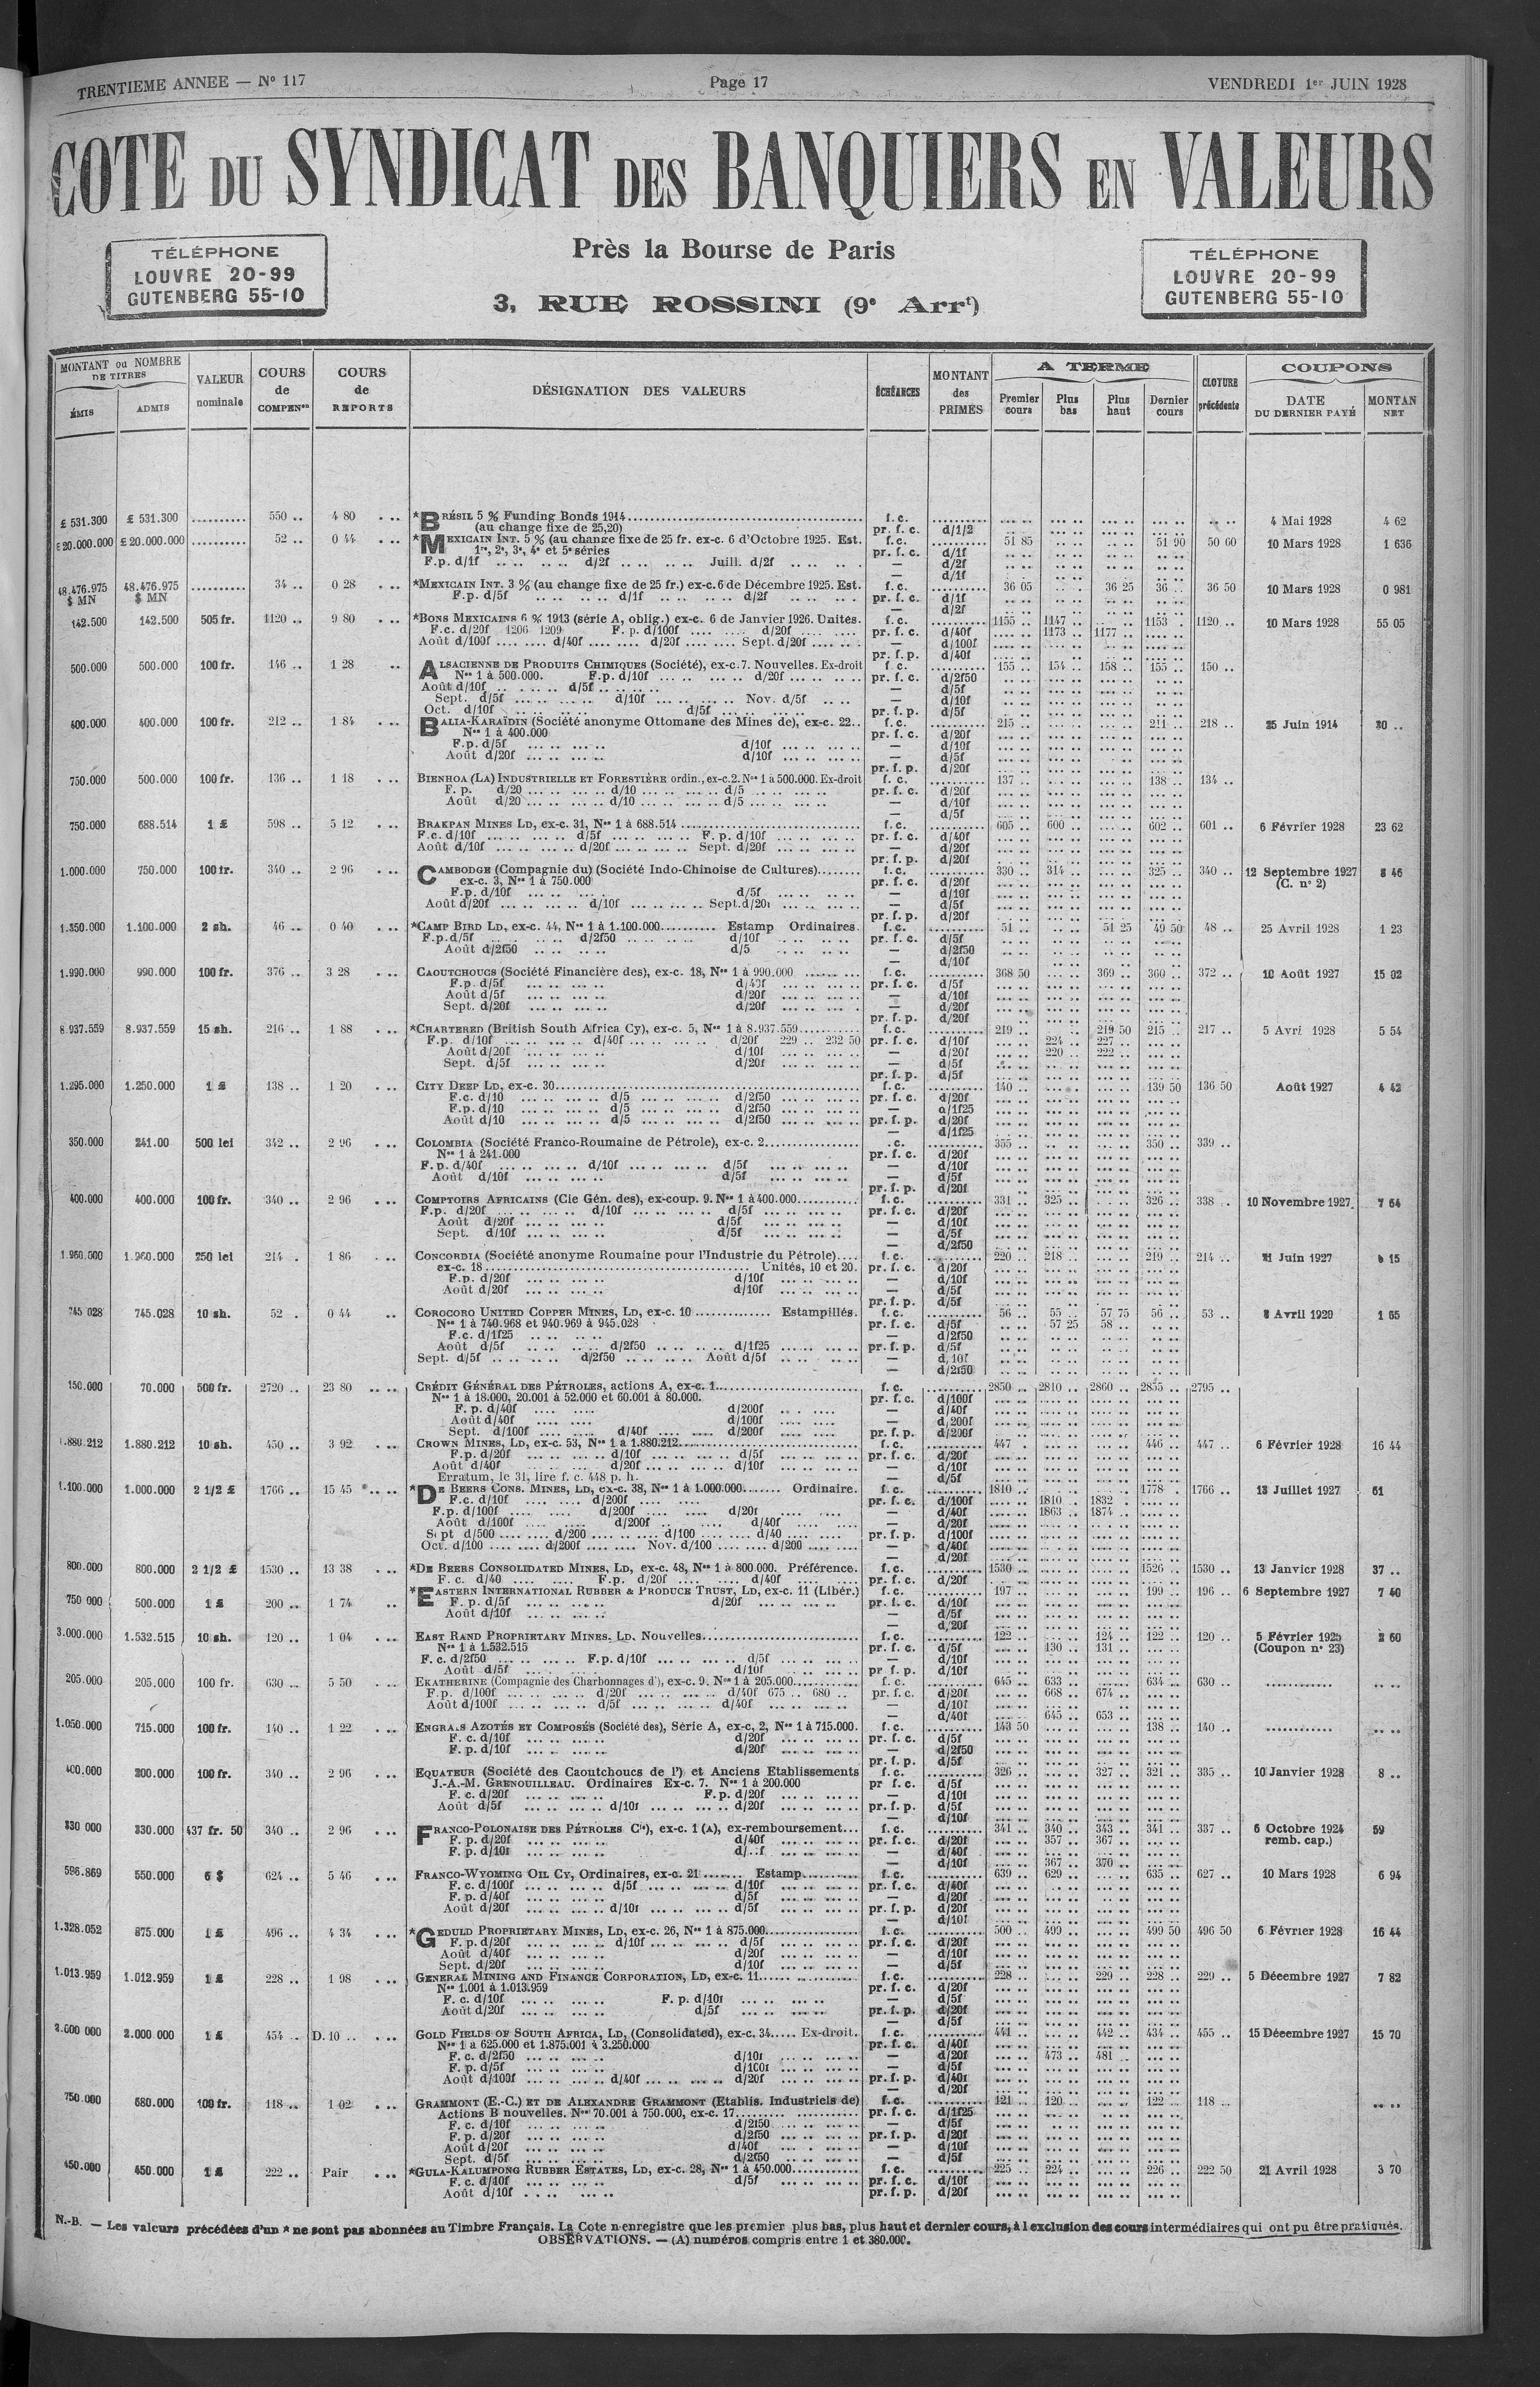 TRENTIEME ANNEE — N° 117
Page 17
VENDREDI 1er JUIN 1928
COTE DU SYNDICAT DES BANQUIERS EN VALEURS
TÉLÉPHONE
LOUVRE 20-99
GUTENBERG 55-10
Près la Bourse de Paris
3, RUE ROSSINI (9e Arrt)
TÉLÉPHONE
LOUVRE 20-99
GUTENBERG 55-10
MONTANT ou NOMBRE DE TITRES
ÉMIS
ADMIS
VALEUR nominale
COURS de COMPENon
COURS de REPORTS
DÉSIGNATION DES VALEURS
ÉCHÉANCES
MONTANT des PRIMES
A TERME
Premier cours
Plus bas
Plus haut
Dernier cours
CLOTURE précédente
COUPONS
DATE DU DERNIER PAYÉ
MONTAN NET
£ 531.300 £ 531.300 .......... 550 .. 4 80 *BRÉSIL 5 % Funding Bonds 1914 f. c. 4 Mai 1928 4 62
(au change fixe de 25,20) pr. f. c. d/1/2
£ 20.000.000 £ 20.000.000 .......... 52 .. 0 44 *MEXICAIN INT. 5 % (au change fixe de 25 fr. ex-c. 6 d'Octobre 1925. Est. f. c. 51 85 51 90 50 60 10 Mars 1928 1 636
1re, 2e, 3e, 4e et 5e séries pr. f. c. d/1f
F.p. d/1f d/2f Juill. d/2f — d/2f
— d/1f
48.476.975 $ MN 48.476.975 $ MN .......... 34 .. 0 28 *MEXICAIN INT. 3 % (au change fixe de 25 fr.) ex-c. 6 de Décembre 1925. Est. f. c. 36 05 36 25 36 .. 36 50 10 Mars 1928 0 981
F.p. d/5f d/1f d/2f pr. f. c. d/1f
— d/2f
142.500 142.500 505 fr. 1120 .. 9 80 *BONS MEXICAINS 6 % 1913 (série A, oblig.) ex-c. 6 de Janvier 1926. Unités. f. c. 1155 .. 1147 .. 1153 .. 1120 .. 10 Mars 1928 55 05
F.c. d/20f 1206 1209 F. p. d/100f d/20f pr. f. c. d/40f 1173 .. 1177 ..
Août d/100f d/40f d/20f Sept. d/20f — d/100f
pr. f. p. d/40f
500.000 500.000 100 fr. 146 .. 1 28 ALSACIENNE DE PRODUITS CHIMIQUES (Société), ex-c. 7. Nouvelles. Ex-droit f. c. 155 .. 154 .. 158 .. 155 .. 150 ..
Nos 1 à 500.000. F.p. d/10f d/20f pr. f. c. d/2f50
Août d/10f d/5f — d/5f
Sept. d/5f d/10f Nov. d/5f — d/10f
Oct. d/10f d/5f pr. f. p. d/5f
400.000 400.000 100 fr. 212 .. 1 84 BALIA-KARAÏDIN (Société anonyme Ottomane des Mines de), ex-c. 22.. f. c. 215 .. 211 .. 218 .. 25 Juin 1914 20 ..
Nos 1 à 400.000 pr. f. c. d/20f
F.p. d/5f d/10f — d/10f
Août d/20f d/10f — d/5f
pr. f. p. d/20f
750.000 500.000 100 fr. 136 .. 1 18 BIENHOA (LA) INDUSTRIELLE ET FORESTIÈRE ordin., ex-c. 2. Nos 1 à 500.000. Ex-droit f. c. 137 .. 138 .. 134 ..
F. p. d/20 d/10 d/5 pr. f. c. d/20f
Août d/20 d/10 d/5 — d/10f
— d/5f
750.000 688.514 1 £ 598 .. 5 12 BRAKPAN MINES LD, ex-c. 31, Nos 1 à 688.514 f. c. 605 .. 600 .. 602 .. 601 .. 6 Février 1928 23 62
F.c. d/10f d/5f F. p. d/10f pr. f. c. d/40f
Août d/10f d/20f Sept. d/20f — d/20f
pr. f. p. d/20f
1.000.000 750.000 100 fr. 340 .. 2 96 CAMBODGE (Compagnie du) (Société Indo-Chinoise de Cultures) f. c. 330 .. 314 .. 325 .. 340 .. 12 Septembre 1927 8 46
ex-c. 3, Nos 1 à 750.000 pr. f. c. d/20f (C. n° 2)
F.p. d/10f d/5f — d/10f
Août d/20f d/10f Sept. d/20f — d/5f
pr. f. p. d/20f
1.350.000 1.100.000 2 sh. 46 .. 0 40 *CAMP BIRD LD, ex-c. 44, Nos 1 à 1.100.000 Estamp Ordinaires. f. c. 51 .. 51 25 49 50 48 .. 25 Avril 1928 1 23
F.p. d/5f d/2f50 d/10f pr. f. c. d/5f
Août d/2f50 d/5 — d/2f50
— d/10f
1.990.000 990.000 100 fr. 376 .. 3 28 CAOUTCHOUCS (Société Financière des), ex-c. 18, Nos 1 à 990.000 f. c. 368 50 369 .. 360 .. 372 .. 10 Août 1927 15 02
F.p. d/5f d/40f pr. f. c. d/5f
Août d/5f d/20f — d/10f
Sept. d/20f d/20f — d/20f
pr. f. p. d/20f
8.937.559 8.937.559 15 sh. 216 .. 1 88 *CHARTERED (British South Africa Cy), ex-c. 5, Nos 1 à 8.937.559 f. c. 219 .. 219 50 215 .. 217 .. 5 Avri 1928 5 54
F.p. d/10f d/40f d/20f 229 .. 232 50 pr. f. c. d/10f 224 .. 227 ..
Août d/20f d/10f — d/20f 220 .. 222 ..
Sept. d/5f d/20f — d/5f
pr. f. p. d/5f
1.295.000 1.250.000 1 £ 138 .. 1 20 CITY DEEP LD, ex-c. 30 f. c. 140 .. 139 50 136 50 Août 1927 4 42
F.c. d/10 d/5 d/2f50 pr. f. c. d/20f
F.p. d/10 d/5 d/2f50 — d/1f25
Août d/10 d/5 d/2f50 pr. f. p. d/20f
— d/1f25
350.000 241.00 500 lei 342 .. 2 96 COLOMBIA (Société Franco-Roumaine de Pétrole), ex-c. 2 .c. 355 .. 350 .. 339 ..
Nos 1 à 241.000 pr. f. c. d/20f
F.p. d/40f d/10f d/5f — d/10f
Août d/10f d/5f — d/5f
pr. f. p. d/20f
400.000 400.000 100 fr. 340 .. 2 96 COMPTOIRS AFRICAINS (Cie Gén. des), ex-coup. 9. Nos 1 à 400.000 f. c. 331 .. 325 .. 326 .. 338 .. 10 Novembre 1927 7 64
F.p. d/20f d/10f d/5f pr. f. c. d/20f
Août d/20f d/5f — d/10f
Sept. d/10f d/5f — d/5f
— d/2f50
1.960.000 1.960.000 250 lei 214 . 1 86 CONCORDIA (Société anonyme Roumaine pour l'Industrie du Pétrole) f. c. 220 .. 218 .. 219 .. 214 .. 21 Juin 1927 15
ex-c. 18 Unités, 10 et 20. pr. f. c. d/20f
F.p. d/20f d/10f — d/10f
Août d/20f d/10f — d/5f
pr. f. p. d/5f
745 028 745.028 10 sh. 52 . 0 44 COROCORO UNITED COPPER MINES, LD, ex-c. 10 Estampillés. f. c. 56 .. 55 .. 57 75 56 .. 53 .. 8 Avril 1920 1 65
Nos 1 à 740.968 et 940.969 à 945.028 pr. f. c. d/5f 57 25 58 ..
F.c. d/1f25 — d/2f50
Août d/5f d/2f50 d/1f25 pr. f. p. d/5f
Sept. d/5f d/2f50 Août d/5f — d/10f
— d/2f50
150.000 70.000 500 fr. 2720 .. 23 80 CRÉDIT GÉNÉRAL DES PÉTROLES, actions A, ex-c. 1 f. c. 2850 .. 2810 .. 2860 .. 2855 .. 2795 ..
Nos 1 à 18.000, 20.001 à 52.000 et 60.001 à 80.000. pr. f. c. d/100f
F. p. d/40f d/200f — d/40f
Août d/40f d/100f — d/200f
Sept. d/100f d/40f d/200f pr. f. p. d/200f
1.880.212 1.880.212 10 sh. 450 .. 3 92 CROWN MINES, LD, ex-c. 53, Nos 1 à 1.880.212 f. c. 447 . 446 .. 447 .. 6 Février 1928 16 44
F.p. d/20f d/10f d/5f pr. f. c. d/20f
Août d/40f d/20f d/10f — d/10f
Erratum, le 31, lire f. c. 448 p. h. — d/5f
1.100.000 1.000.000 2 1/2 £ 1766 .. 15 45 *DE BEERS CONS. MINES, LD, ex-c. 38, Nos 1 à 1.000.000 Ordinaire. f. c. 1810 .. 1778 . 1766 .. 13 Juillet 1927 61
F.c. d/10f d/200f pr. f. c. d/100f 1810 .. 1832 .
F.p. d/100f d/200f d/20f — d/40f 1863 .. 1874 ..
Août d/100f d/200f d/40f — d/20f
Sept d/500 d/200 d/100 d/40 pr. f. p. d/100f
Oct. d/100 d/200f Nov. d/100 d/200 — d/40f
— d/20f
800.000 800.000 2 1/2 £ 1530 .. 13 38 *DE BEERS CONSOLIDATED MINES, LD, ex-c. 48, Nos 1 à 800.000. Préférence. f. c. 1530 .. 1526 .. 1530 .. 13 Janvier 1928 37 ..
F. c. d/40 F.p. d/20f d/40f pr. f. c. d/20f
750 000 500.000 1 £ 200 .. 1 74 *EASTERN INTERNATIONAL RUBBER & PRODUCE TRUST, LD, ex-c. 11 (Libér.) f. c. 197 .. 199 .. 196 .. 6 Septembre 1927 7 40
F. p. d/5f d/20f pr. f. c. d/10f
Août d/10f — d/5f
— d/20f
3.000.000 1.532.515 10 sh. 120 .. 1 04 EAST RAND PROPRIETARY MINES, LD, Nouvelles f. c. 122 .. 124 .. 122 .. 120 .. 5 Février 1925 2 60
Nos 1 à 1.532.515 pr. f. c. d/5f 130 .. 131 .. (Coupon n° 23)
F. c. d/2f50 F.p. d/10f d/5f — d/10f
Août d/5f d/10f pr. f. p. d/10f
205.000 205.000 100 fr. 630 .. 5 50 EKATHERINE (Compagnie des Charbonnages d'), ex-c. 9. Nos 1 à 205.000 f. c. 645 .. 633 .. 634 .. 630 ..
F.p. d/100f d/20f d/40f 675 .. 680 .. pr. f. c. d/20f 668 .. 674 ..
Août d/100f d/5f d/40f — d/10f
— d/40f 645 .. 653 ..
1.050.000 715.000 100 fr. 140 .. 1 22 ENGRAIS AZOTÉS ET COMPOSÉS (Société des), Série A, ex-c. 2, Nos 1 à 715.000. f. c. 143 50 138 .. 140 ..
F. c. d/10f d/20f pr. f. c. d/5f
F. p. d/10f d/20f — d/2f50
pr. f. p. d/5f
400.000 200.000 100 fr. 340 .. 2 96 EQUATEUR (Société des Caoutchoucs de l') et Anciens Etablissements f. c. 326 .. 327 .. 321 .. 335 .. 10 Janvier 1928 8 ..
J.-A.-M. GRENOUILLEAU. Ordinaires Ex-c. 7. Nos 1 à 200.000 pr f. c. d/5f
F. c. d/20f F.p. d/20f — d/10f
Août d/5f d/10f d/20f pr. f. p. d/5f
— d/10f
330 000 330.000 437 fr. 50 340 .. 2 96 FRANCO-POLONAISE DES PÉTROLES Cie), ex-c. 1 (A), ex-remboursement... f. c. 341 .. 340 .. 343 .. 341 .. 337 .. 6 Octobre 1924 59
F. p. d/20f d/40f pr. f. c. d/20f 357 .. 367 .. remb. cap.)
F. p. d/10f d/..f — d/40f
— d/10f 367 .. 370 ..
596.869 550.000 6 $ 624 .. 5 46 FRANCO-WYOMING OIL CY, Ordinaires, ex-c. 21 Estamp. f. c. 639 .. 629 .. 635 .. 627 .. 10 Mars 1928 6 94
F. c. d/100f d/5f d/10f pr. f. c. d/40f
F. p. d/40f d/5f — d/20f
Août d/20f d/10f d/5f pr. f. p. d/20f
— d/10f
1.328.052 875.000 1 £ 496 .. 4 34 *GEDULD PROPRIETARY MINES, LD, ex-c. 26, Nos 1 à 875.000 f. c. 500 .. 499 .. 499 50 496 50 6 Février 1928 16 44
F. p. d/20f d/10f d/5f pr. f. c. d/20f
Août d/40f d/20f — d/10f
Sept. d/20f d/10f — d/5f
1.013.959 1.012.959 1 £ 228 .. 1 98 GENERAL MINING AND FINANCE CORPORATION, LD, ex-c. 11 f. c. 228 .. 229 .. 228 .. 229 .. 5 Décembre 1927 7 82
Nos 1.001 à 1.013.959 pr. f. c. d/20f
F. c. d/10f F. p. d/10f — d/5f
Août d/20f d/5f pr. f. p. d/20f
— d/5f
2.000 000 2.000 000 1 £ 454 .. D. 10 .. GOLD FIELDS OF SOUTH AFRICA, LD, (Consolidated), ex-c. 34 Ex-droit. f. c. 441 .. 442 .. 434 .. 455 .. 15 Décembre 1927 15 70
Nos 1 à 625.000 et 1.875.001 à 3.250.000 pr. f. c. d/40f
F. c. d/2f50 d/10f — d/20f 473 .. 481 ..
F. p. d/5f d/100f — d/5f
Août d/100f d/40f d/20f pr. f. p. d/40f
— d/20f
750.000 680.000 100 fr. 118 .. 1 02 GRAMMONT (E.-C.) ET DE ALEXANDRE GRAMMONT (Etablis. Industriels de) f. c. 121 .. 120 .. 122 .. 118 ..
Actions B nouvelles. Nos 70.001 à 750.000, ex-c. 17 pr. f. c. d/1f25
F. c. d/10f d/2f50 — d/5f
F. p. d/20f d/2f50 pr. f. p. d/20f
Août d/20f d/40f — d/10f
Sept. d/5f d/2f50 — d/5f
450.000 450.000 1 £ 222 .. Pair *GULA-KALUMPONG RUBBER ESTATES, LD, ex-c. 28, Nos 1 à 450.000 f. c. 225 .. 224 .. 226 .. 222 50 21 Avril 1928 3 70
F. c. d/10f d/5f pr. f. c. d/10f
Août d/10f pr. f. p. d/20f
N.-B. — Les valeurs précédées d'un * ne sont pas abonnées au Timbre Français. La Cote n'enregistre que les premier plus bas, plus haut et dernier cours, à l exclusion des cours intermédiaires qui ont pu être pratiqués.
OBSERVATIONS. — (A) numéros compris entre 1 et 380.000.